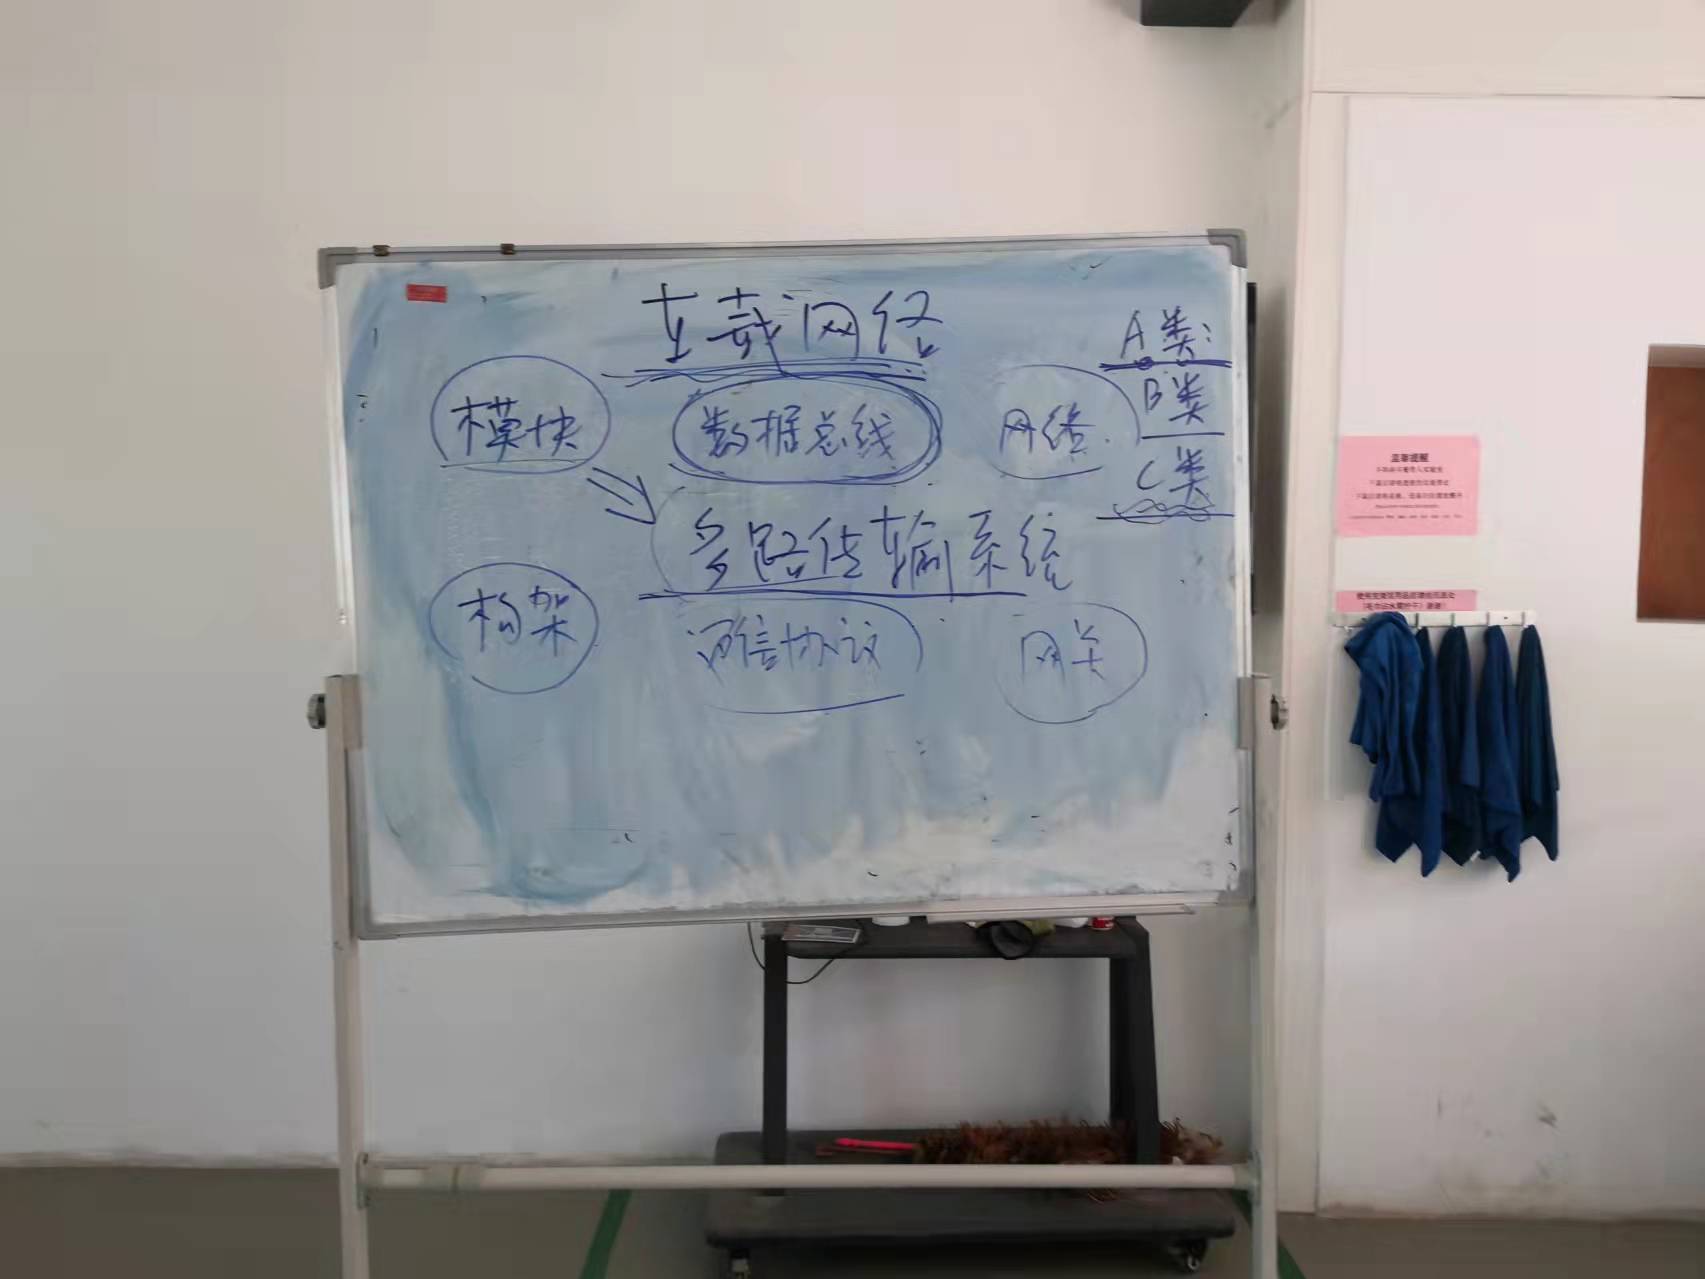 车载网络
A类:
B类
C类
模块
数据总线
网络
多路传输系统
构架
通信协议
网关
温馨提醒